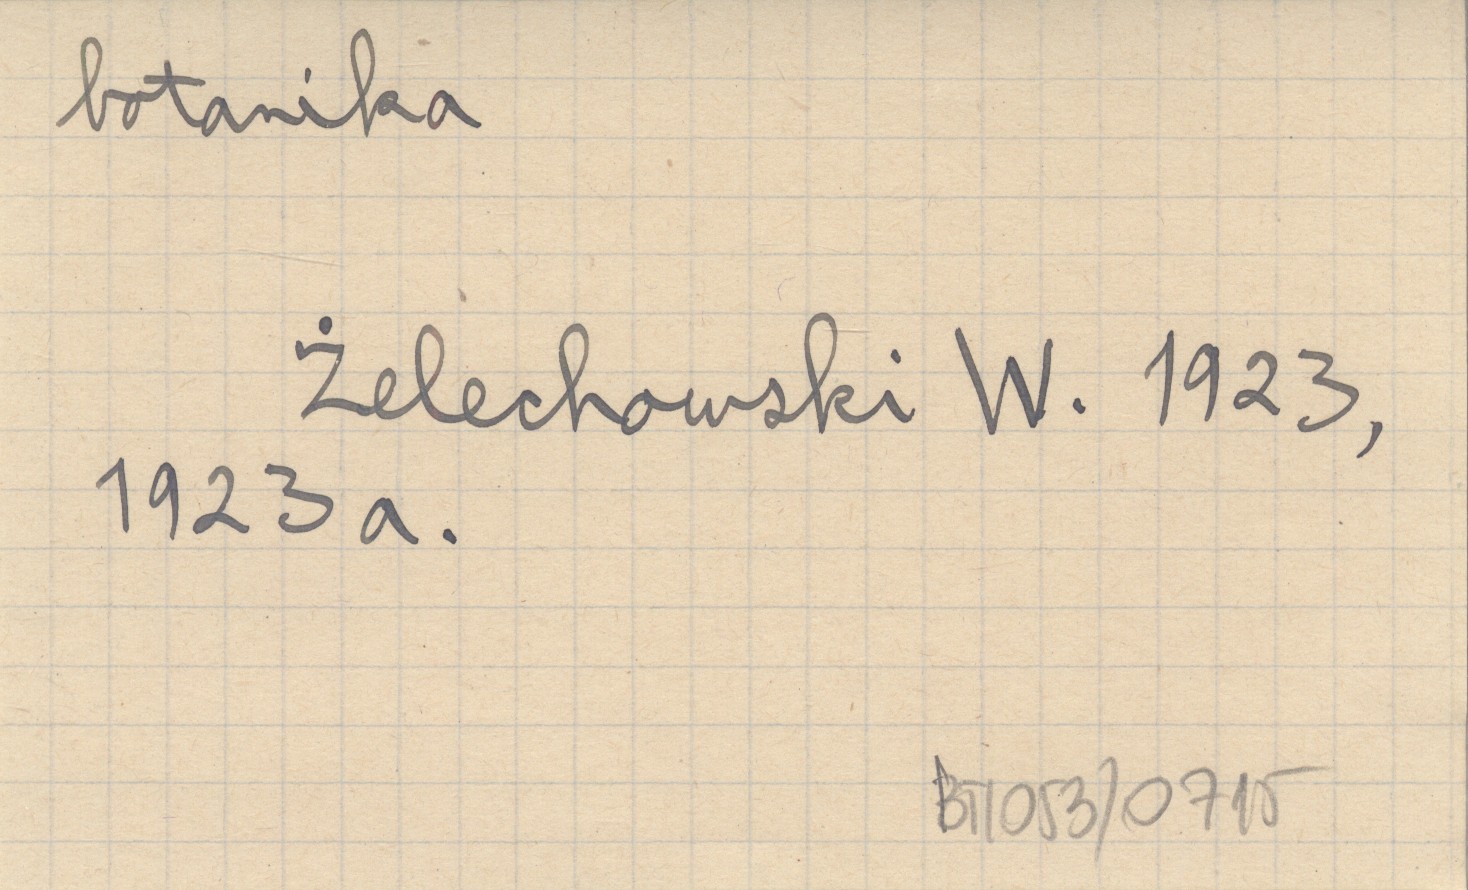 botanika
Żelechowski W. 1923,
1923a.
BT/053/0715